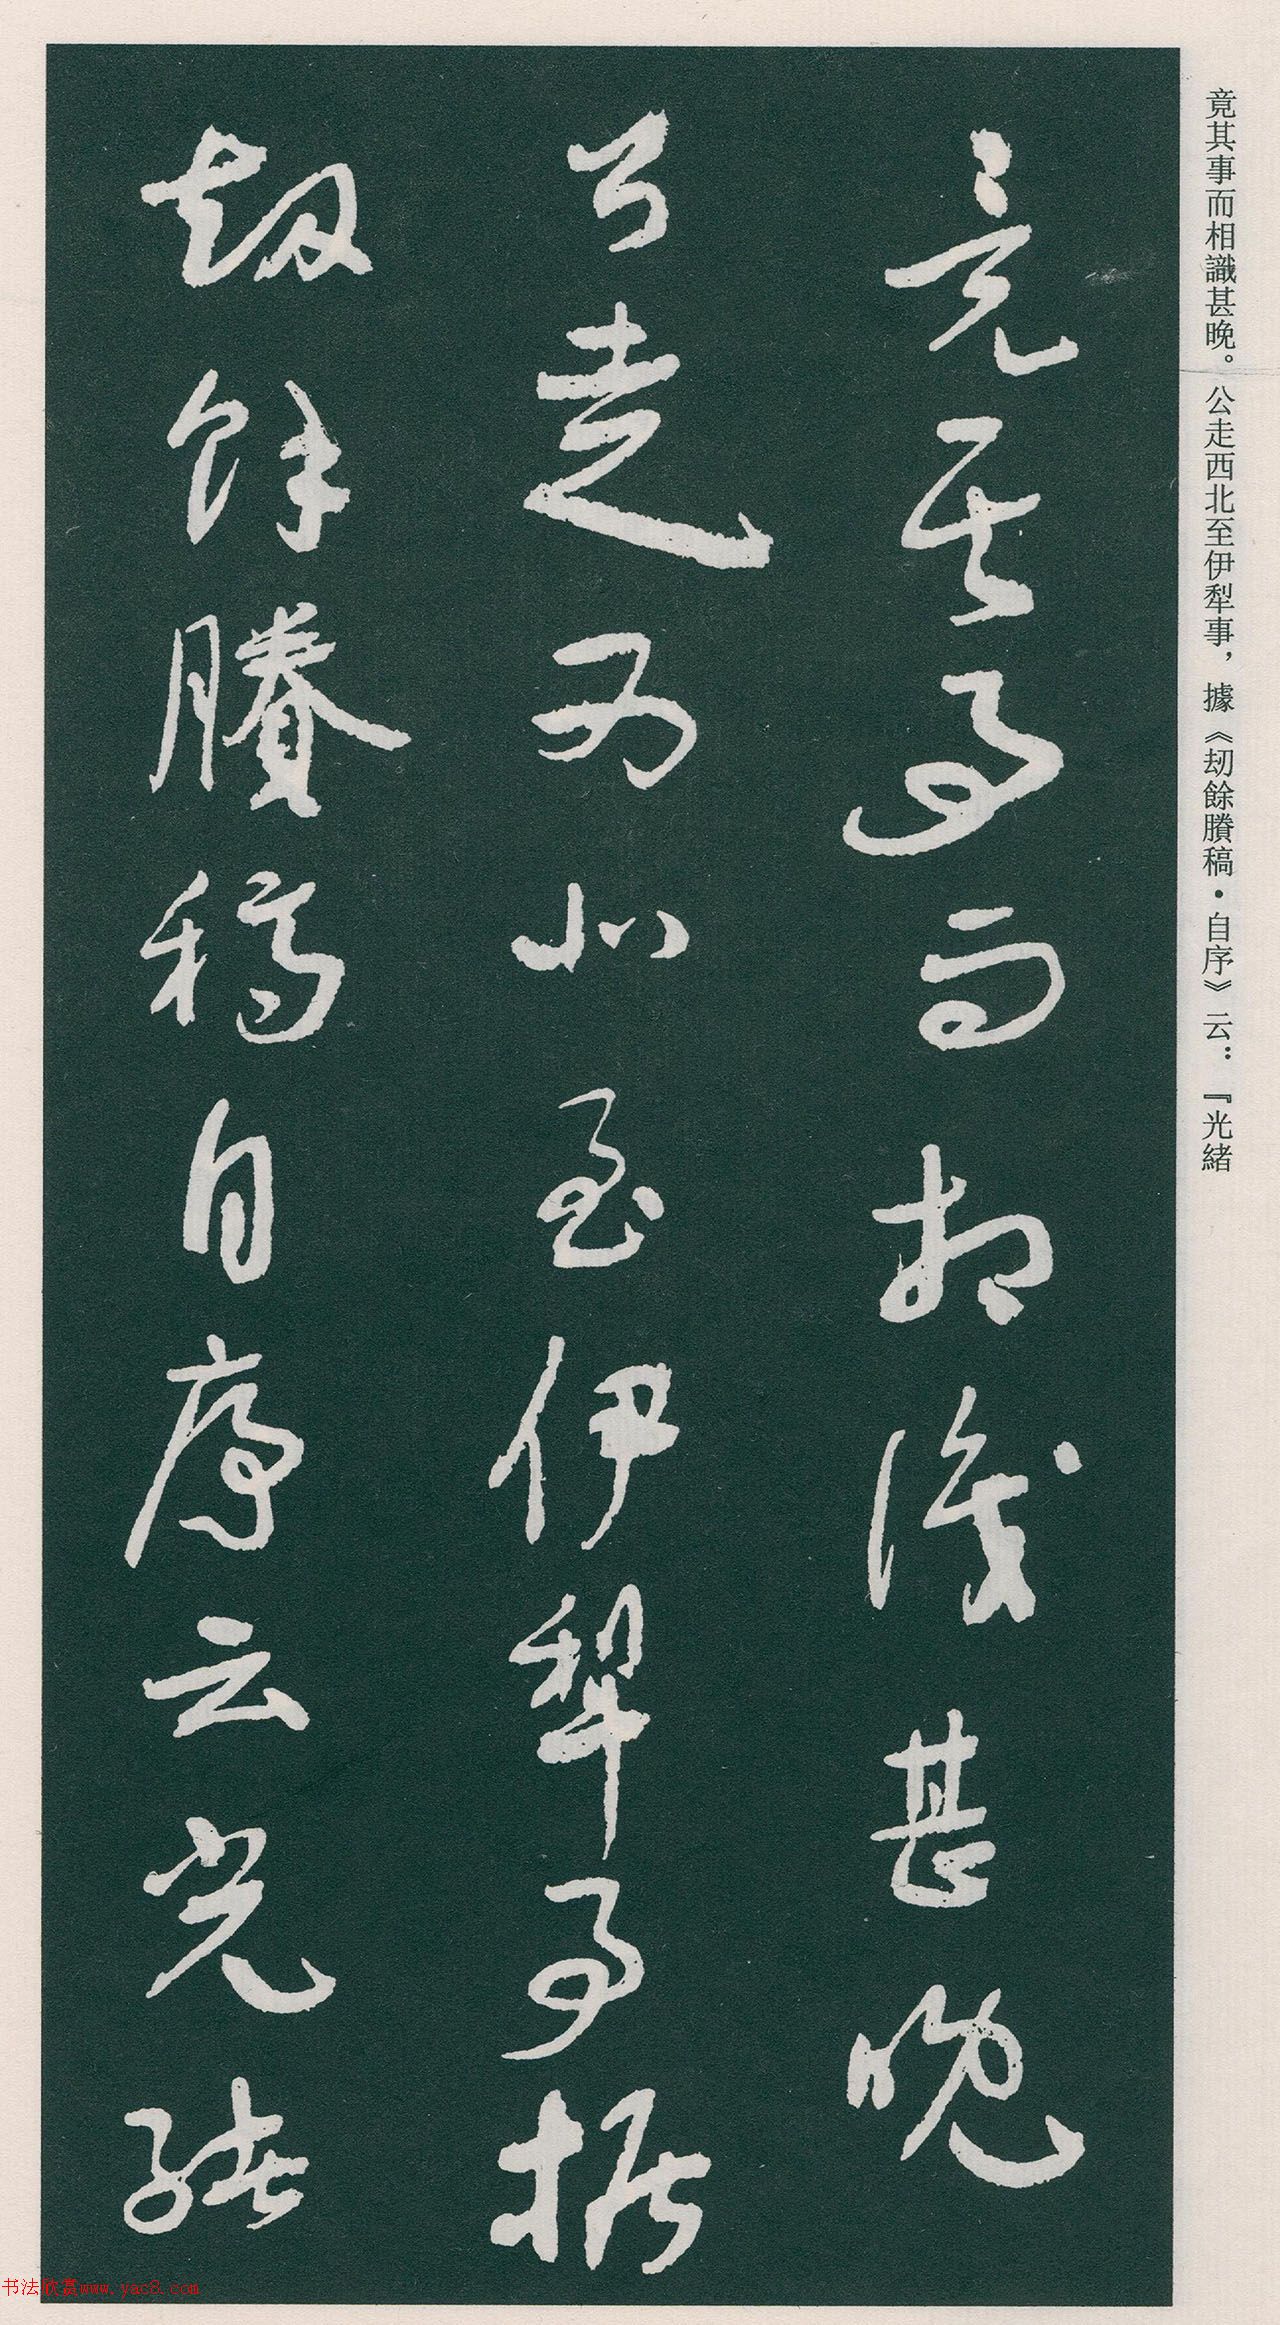 竟其事而相識甚晚。公走西北至伊犁事，據《劫餘賸稿·自序》云：『光緒
竟其事而相識甚晚
公走西北至伊犁事據
劫餘賸稿自序云光緒
书法欣赏www.yac8.com